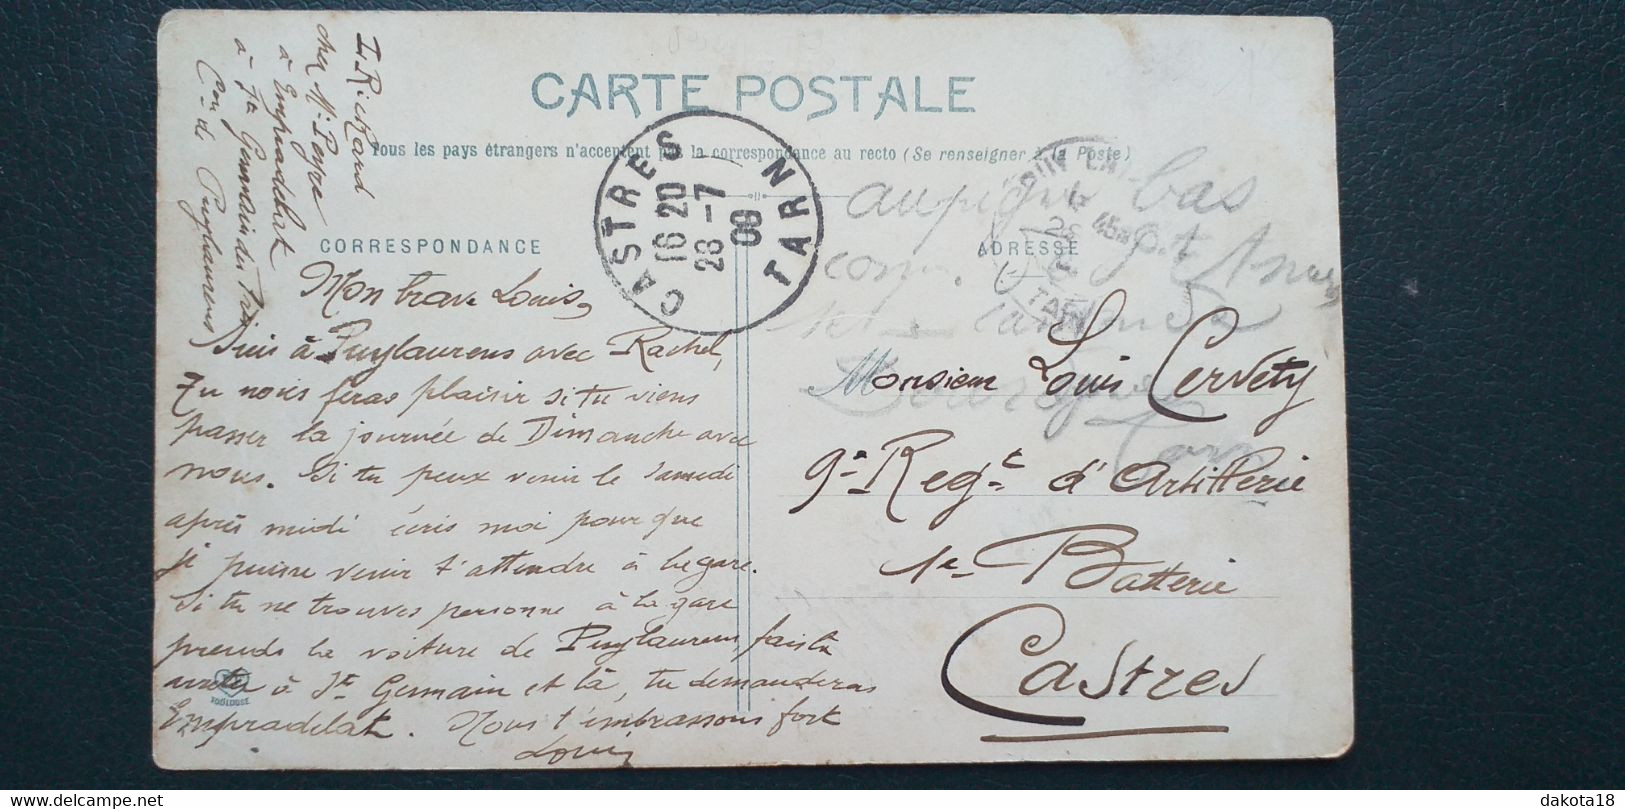 CARTE POSTALE
Tous les pays étrangers n'acceptent pas la correspondance au recto (Se renseigner à la Poste)
CORRESPONDANCE
ADRESSE
CASTRES
16 20
28 -7
09
TARN
TARN
I. Rickard
chez Mr Peyre
à Empradelat
à St Germain des Prés
Con de Puylaurens
Mon brave Louis,
Suis à Puylaurens avec Rachel,
Tu nous feras plaisir si tu viens
passer la journée de Dimanche avec
nous. Si tu peux venir le Samedi
après midi écris moi pour que
je puisse venir t'attendre à la gare.
Si tu ne trouves personne à la gare
prends la voiture de Puylaurens, fais la
arrêter à St Germain et là, tu demanderas
Empradelat. Nous t'embrassons fort
Louis
TOULOUSE
bas
Monsieur Louis Cervety
9e Regt d'Artillerie
1e Batterie
Castres
Tarn
dakota18